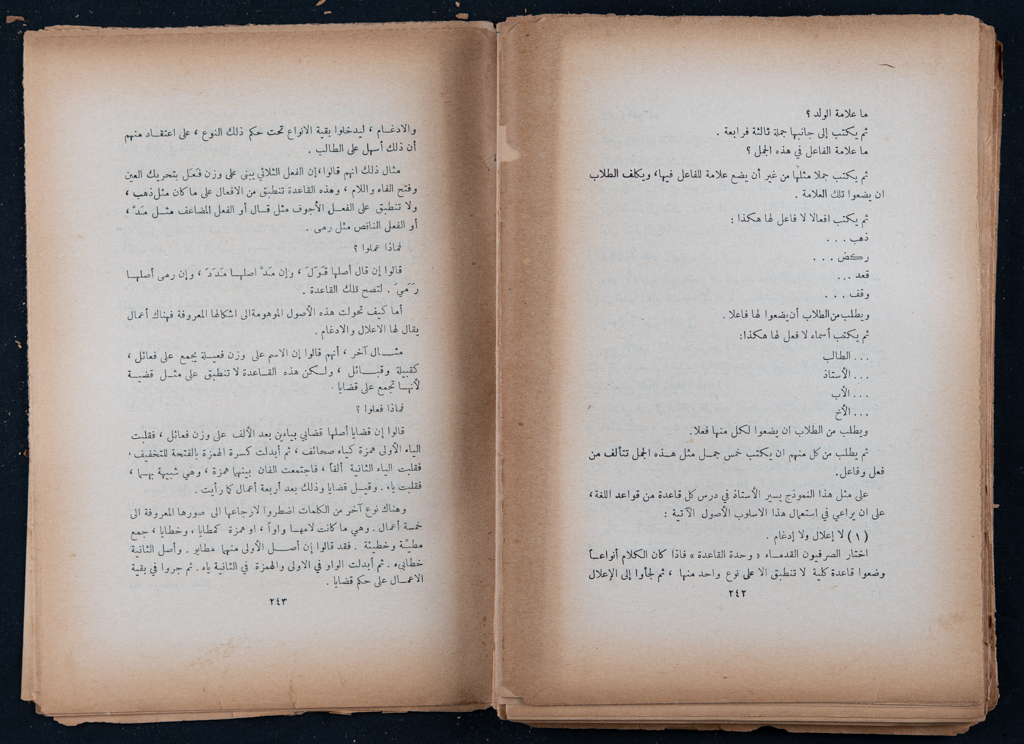 ما علامة الولد ؟
ثم يكتب إلى جانبها جملة ثالثة فرابعة .
ما علامة الفاعل في هذه الجمل ؟
ثم يكتب جملا مثلها من غير أن يضع علامة للفاعل فيها، ويكلف الطلاب
ان يضعوا تلك العلامة .
ثم يكتب افعالا لا فاعل لها هكذا :
ذهب . . .
ركض . . .
قعد . . .
وقف . . .
ويطلب من الطلاب أن يضعوا لها فاعلا .
ثم يكتب أسماء لا فعل لها هكذا:
. . . الطالب
. . . الأستاذ
. . . الأب
. . . الأخ
ويطلب من الطلاب ان يضعوا لكل منها فعلا.
ثم يطلب من كل منهم ان يكتب خمس جمل مثل هذه الجمل تتألف من
فعل وفاعل.
على مثل هذا النموذج يسير الأستاذ في درس كل قاعدة من قواعد اللغة،
على ان يراعي في إستعمال هذا الاسلوب الأصول الآتية :
(١) لا إعلال ولا إدغام .
اختار الصرفيون القدماء « وحدة القاعدة » فاذا كان الكلام أنواعاً
وضعوا قاعدة كلية لا تنطبق الا على نوع واحد منها ، ثم لجأوا إلى الإعلال
٢٤٢
والادغام ، ليدخلوا بقية الانواع تحت حكم ذلك النوع ، على اعتقاد منهم
أن ذلك أسهل على الطالب .
مثال ذلك انهم قالوا، إن الفعل الثلاثي يبنى على وزن فَعَل بتحريك العين
وفتح الفاء واللام ، وهذه القاعدة تنطبق من الافعال على ما كان مثل ذهب ،
ولا تنطبق على الفعل الأجوف مثل قال أو الفعل المضاعف مثل مَدَّ ،
أو الفعل الناقص مثل رمى .
فماذا عملوا ؟
قالوا إن قال أصلها قَوَلَ ، وإن مَدَّ اصلها مَدَدَ ، وإن رمى أصلها
رَمَيَ . لتصح تلك القاعدة .
أما كيف تحولت هذه الأصول الموهومة الى اشكالها المعروفة فهناك أعمال
يقال لها الاعلال والادغام .
مثال آخر ، أنهم قالوا إن الاسم على وزن فعيلة يجمع على فعائل ،
كقبيلة وقبائل ، ولكن هذه القاعدة لا تنطبق على مثل قضية
لأنها تجمع على قضايا .
فماذا فعلوا ؟
قالوا إن قضايا أصلها قضايي بياءين بعد الألف على وزن فعائل ، فقلبت
الياء الأولى همزة كياء صحائف ، ثم أبدلت كسرة الهمزة بالفتحة للتخفيف،
فقلبت الياء الثانية ألفاً ، فاجتمعت الفان بينهما همزة ، وهي شبيهة بهما ،
فقلبت ياء . وقيل قضايا وذلك بعد أربعة أعمال كما رأيت .
وهناك نوع آخر من الكلمات اضطروا لارجاعها الى صورها المعروفة الى
خمسة أعمال . وهي ما كانت لامها واواً ، او همزة كمطايا ، وخطايا ، جمع
مطيّة وخطيئة . فقد قالوا إن أصل الأولى منها مطايو . وأصل الثانية
خطايىء . ثم أبدلت الواو في الاولى والهمزة في الثانية ياء . ثم جروا في بقية
الاعمال على حكم قضايا .
٢٤٣